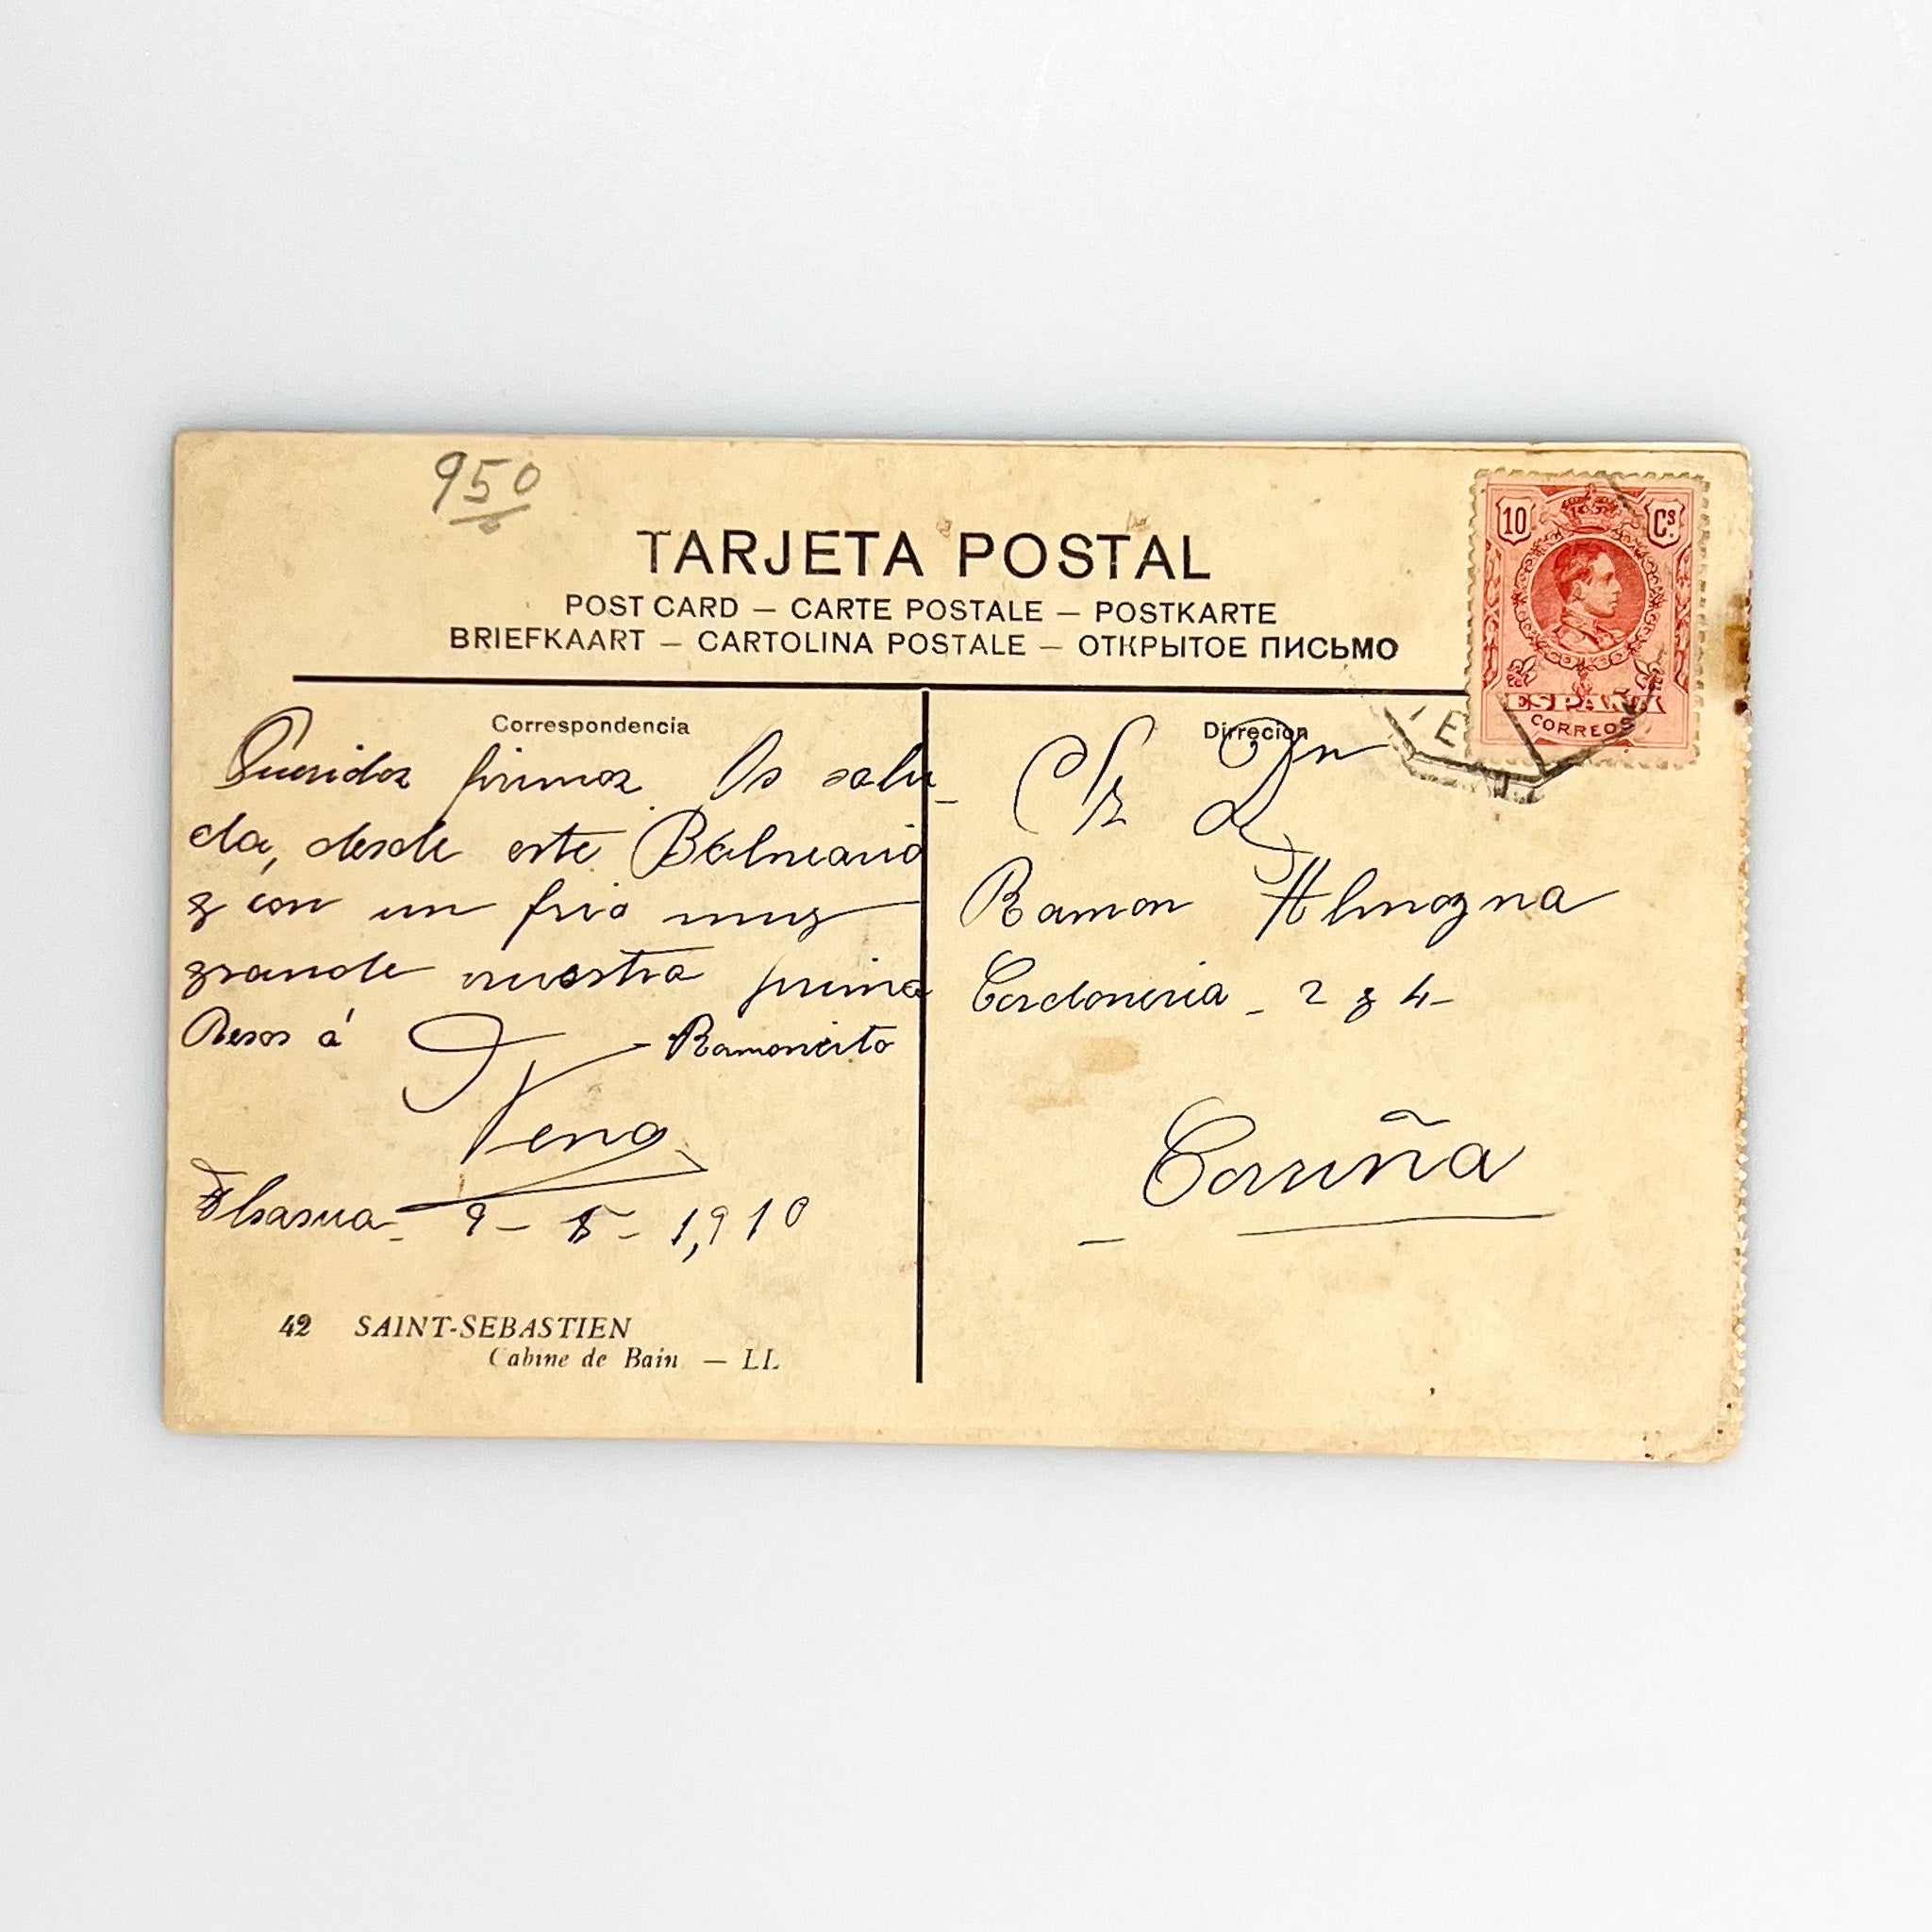 950
TARJETA POSTAL
POST CARD — CARTE POSTALE — POSTKARTE
BRIEFKAART — CARTOLINA POSTALE — ОТКРЫТОЕ ПИСЬМО
10 Cs.
ESPAÑA
CORREOS
E
Correspondencia
Queridos primos. Os salu-
da, desde este Balneario
y con un frio muy
grande vuestra prima
Besos á Ramoncito
Alsasua - 9 - 8 - 1,910
42 SAINT-SEBASTIEN
Cabine de Bain — LL
Dirrecion
Sr Dn
Ramon Almoyna
Cordoneria - 2 y 4 -
Coruña